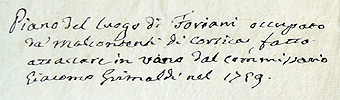 Piano del luogo di Foriani occupato
da' malcontenti di corsica fatto
attaccare in vano dal commissario
Giacomo Grimaldi nel 1759.